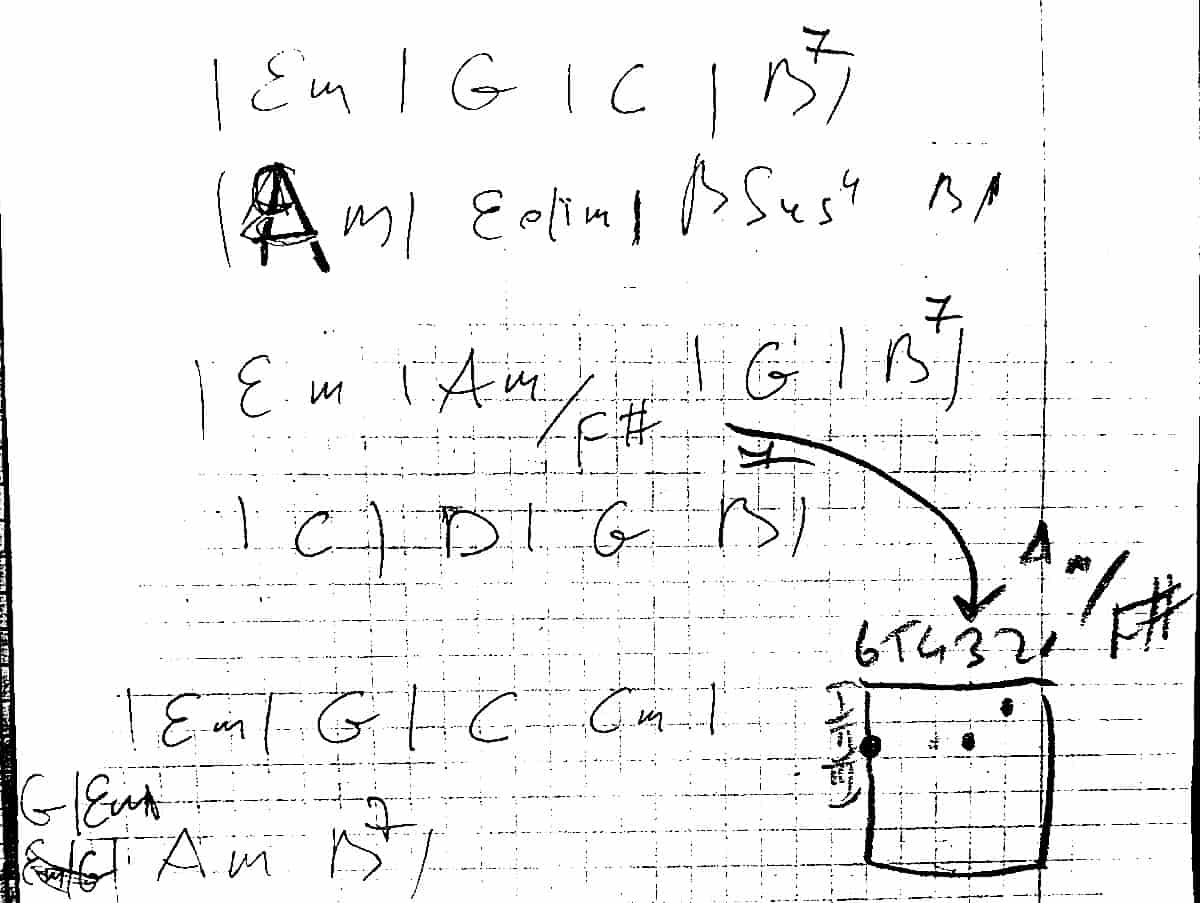 | Em | G | C | B7 |
| Am | Edim | Bsus4 B |
| Em | Am/F# | G | B7 |
| C | D | G B |
Am/F#
654321
| Em | G | C Cm |
G | Em
Am B7 |